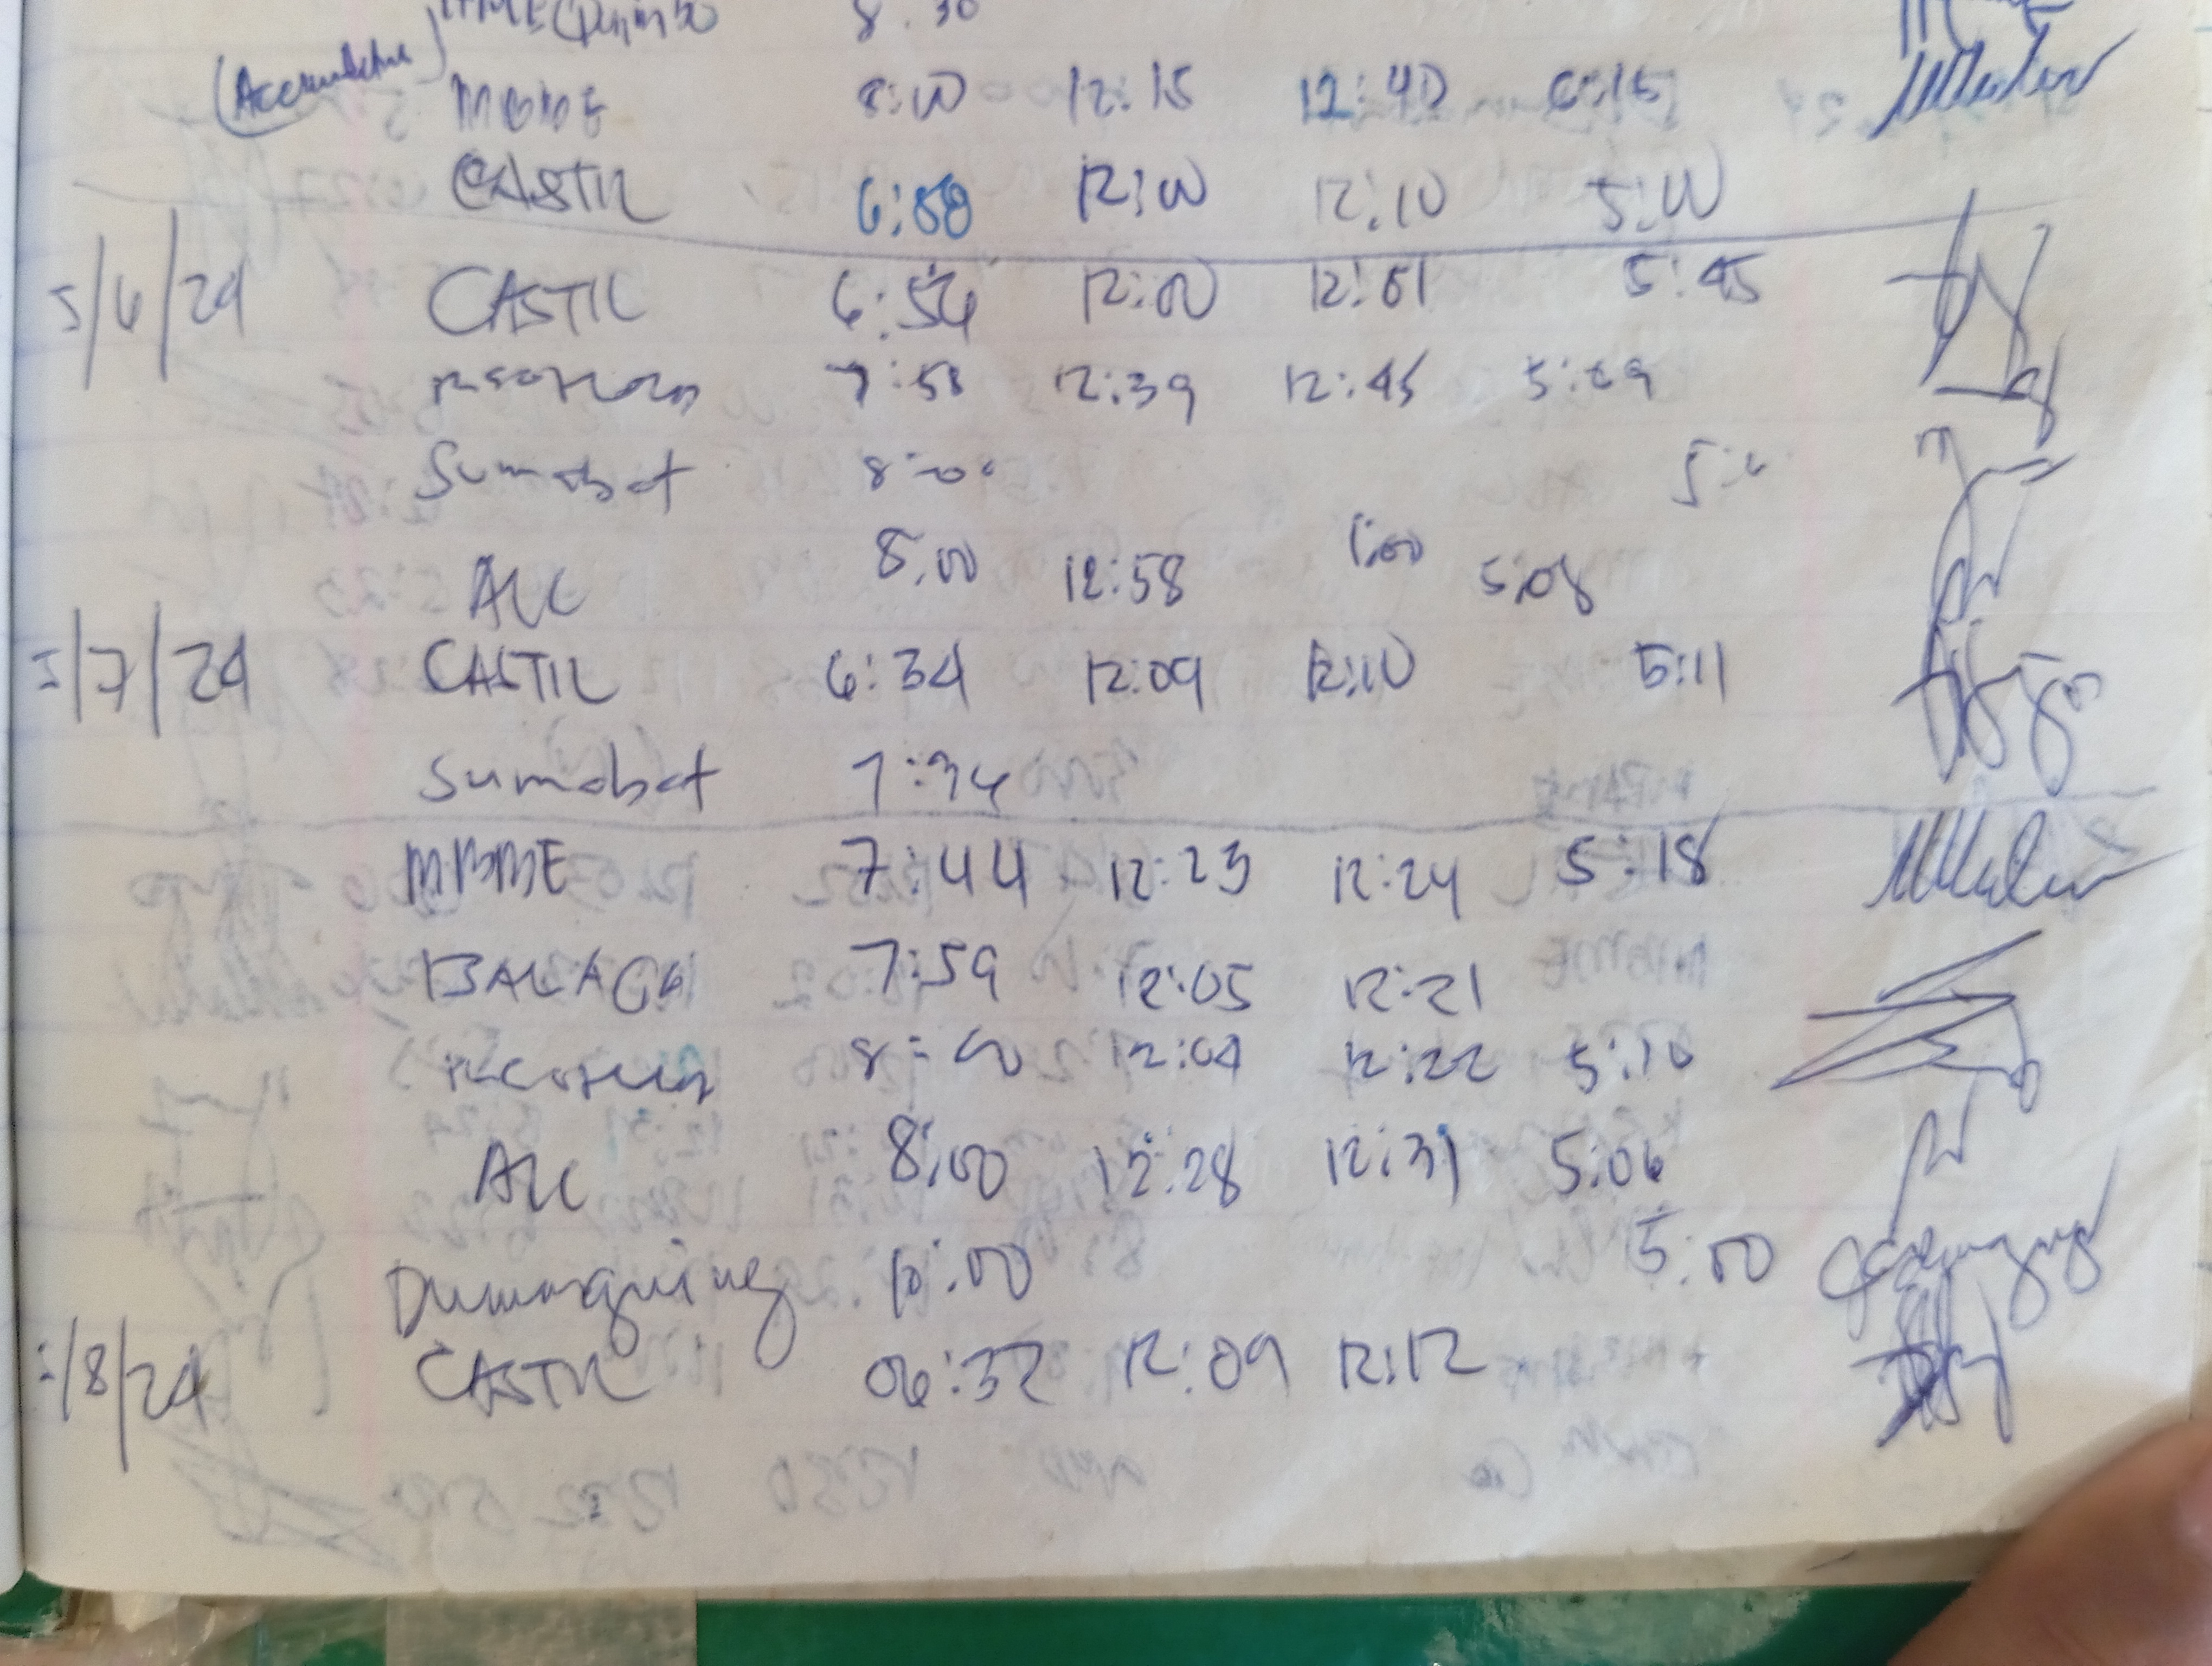 8:30
MBME 8:00 12:15 12:40 5:15
CASTIL 6:58 12:00 12:10 5:00
5/6/24 CASTIL 6:56 12:00 12:01 5:45
7:58 12:39 12:45 5:09
Sumabat 8:00
ALC 8:00 12:58 1:00 5:08
5/7/24 CASTIL 6:34 12:09 12:10 5:11
Sumabat 7:34
MBME 7:44 12:23 12:24 5:18
BALAGA 7:59 12:05 12:21
8:00 12:04 12:22 5:10
ALC 8:00 12:28 12:31 5:06
Dumanguing 10:00 5:00
5/8/24 CASTIL 06:32 12:09 12:12